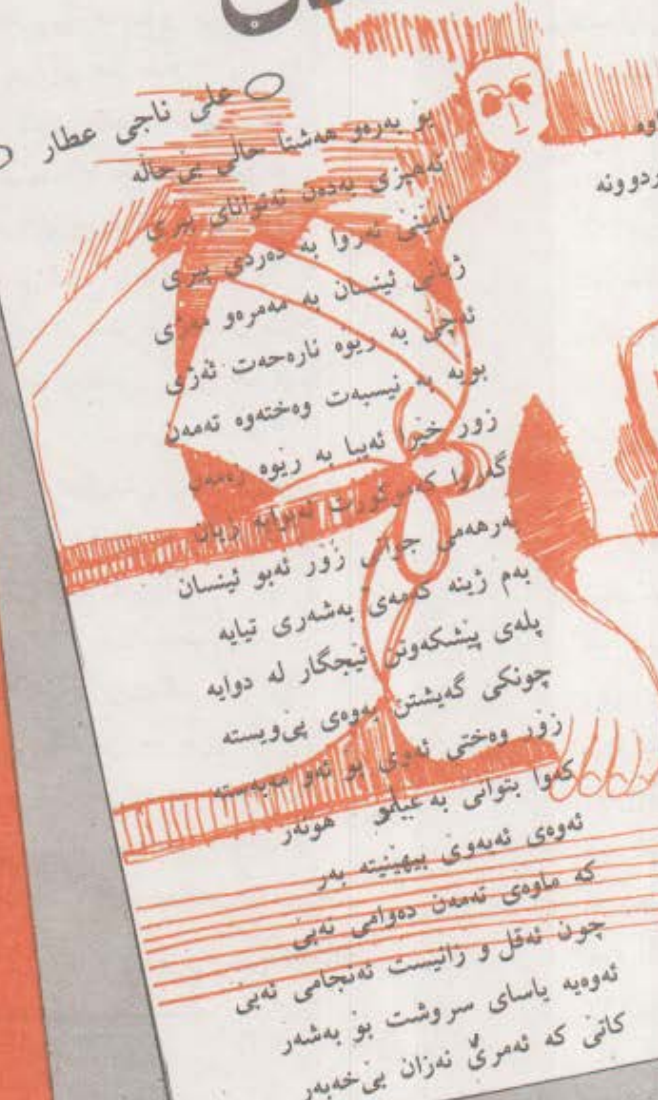 علی ناجی عطار
بۆ بەرەو هەشتا حاڵی بێ‌حاڵە
نەهێزی بەدەن نەتوانای بیری
نامێنێ ئەروا بە دەردی پیری
ژیانی ئینسان بە مەمرەو مەژی
ئەچێ بە ڕێوە نارەحەت ئەژی
بۆیە بە نیسبەت وەختەوە تەمەن
زور خێرا ئەیبا بە ریوە زەمەن
گەروا کەموکورت ژیان
بەرهەمی جوانی زۆر ئەبو ئینسان
بەم ژینە کەمەی بەشەری تیایە
پلەی پێشکەوتن ئیجگار لە دوایە
چونکی گەیشتن بەوەی پێ‌ویستە
زۆر وەختی ئەوێ بۆ ئەو مەبەستە
کەوا بتوانی بە عیلمو هونەر
ئەوەی ئەیەوێ بیهێنێتە بەر
کە ماوەی تەمەن دەوامی نەبێ
چون ئەقل و زانیست ئەنجامی ئەبێ
ئەوەیە یاسای سروشت بۆ بەشەر
کاتێ کە ئەمرێ نەزان بێ‌خەبەر
وە
ردوونە